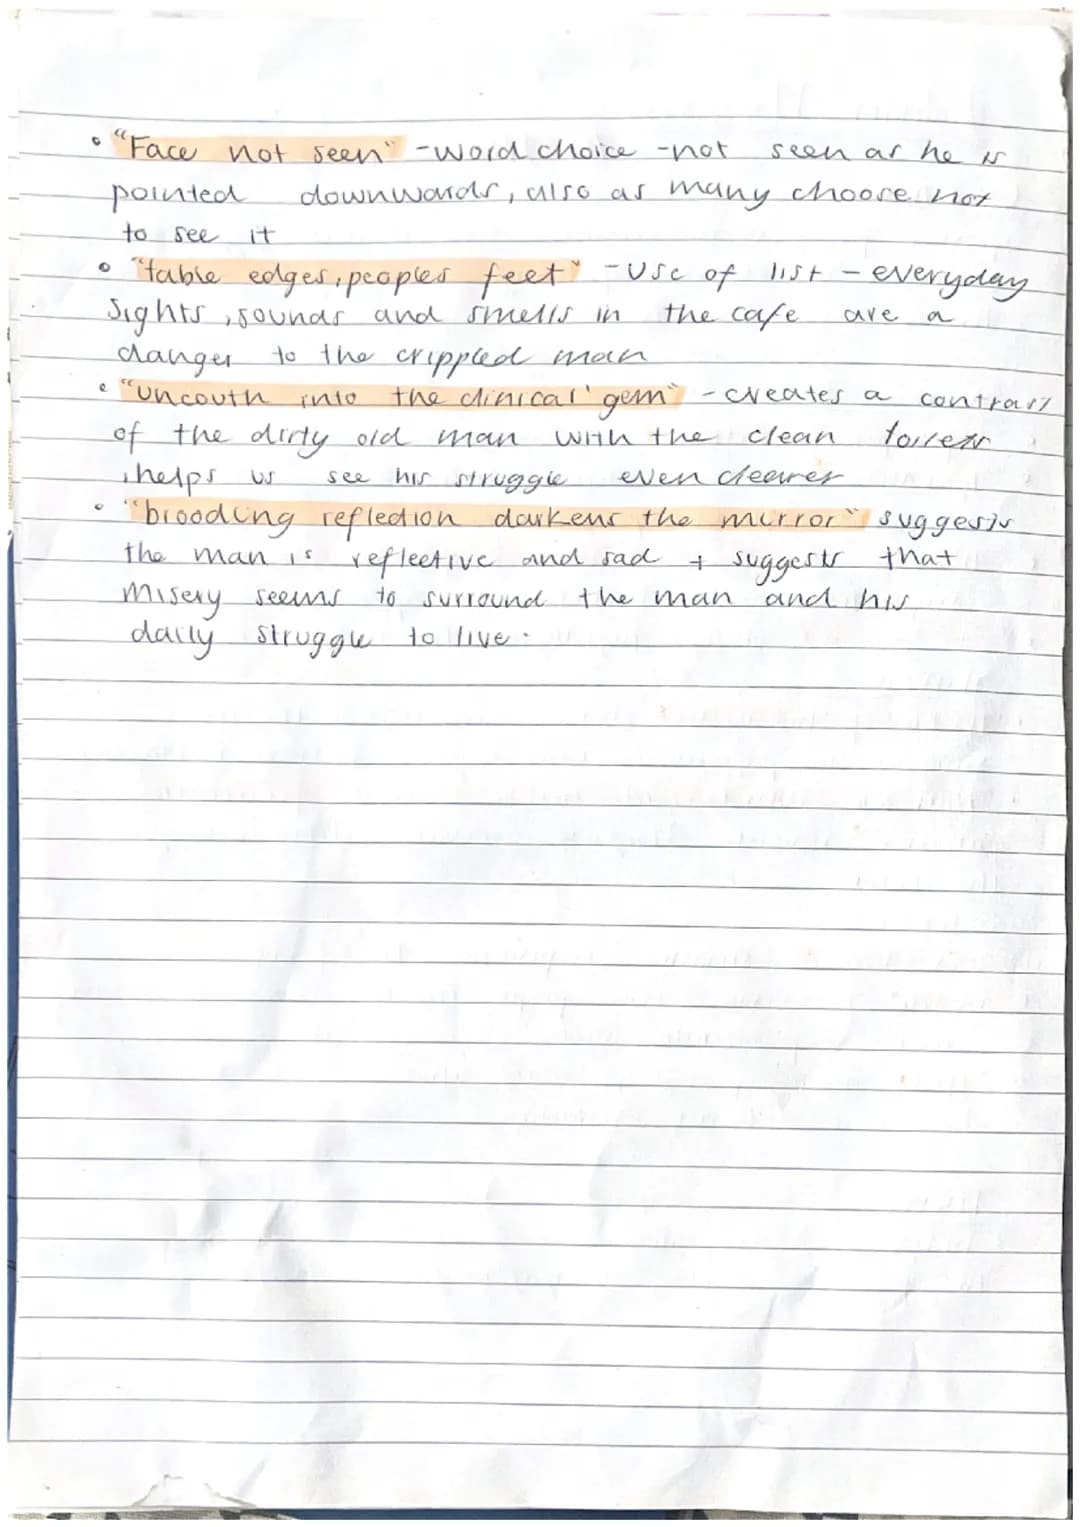 • "Face not seen" - word choice - not seen as he is
pointed downwards, also as many choose not
to see it
• "table edges, peoples feet" - use of list - everyday
sights, sounds and smells in the cafe are a
danger to the crippled man
• "uncouth into the clinical gem" - creates a contrast
of the dirty old man with the clean toilets
, helps us see his struggle even clearer
• "brooding reflection darkens the mirror" suggests
the man is reflective and sad + suggests that
misery seems to surround the man and his
daily struggle to live.